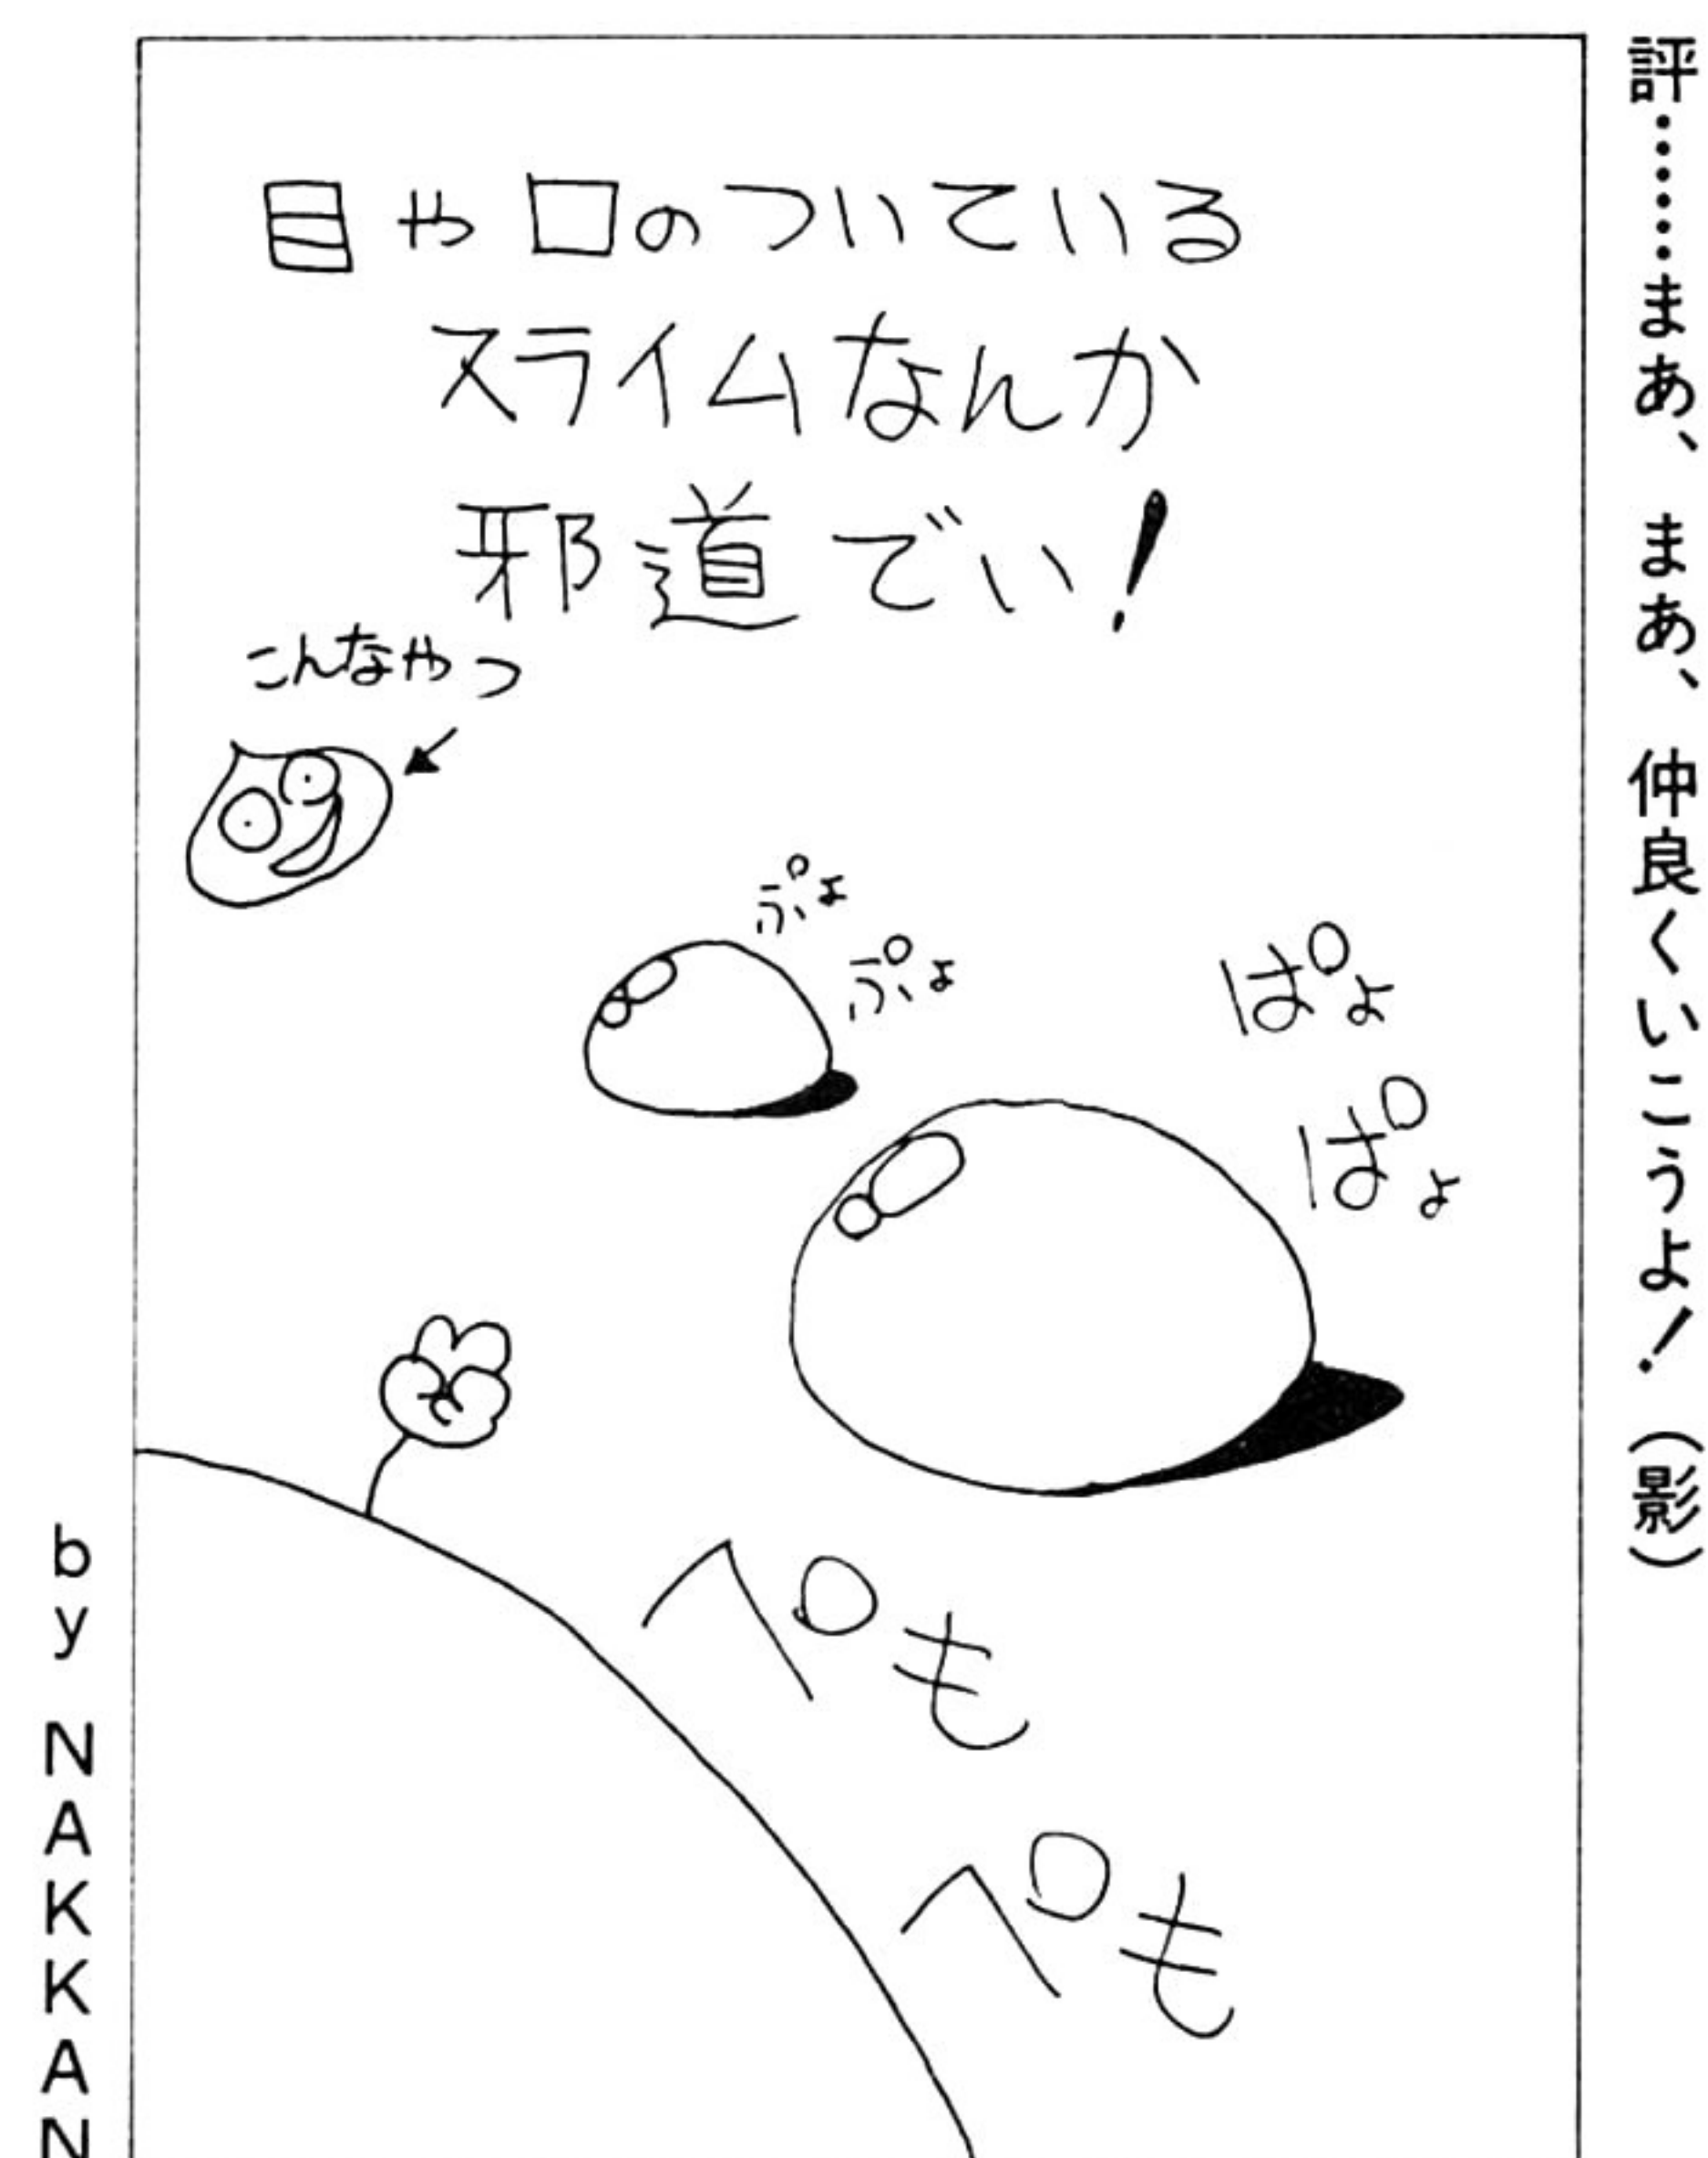 評………まあ、まあ、仲良くいこうよ！（影）
目や口のついている
スライムなんか
邪道でい！
こんなやつ
ぷよ
ぷよ
ぱょ
ぱょ
ペも
ペも
by NAKKAN